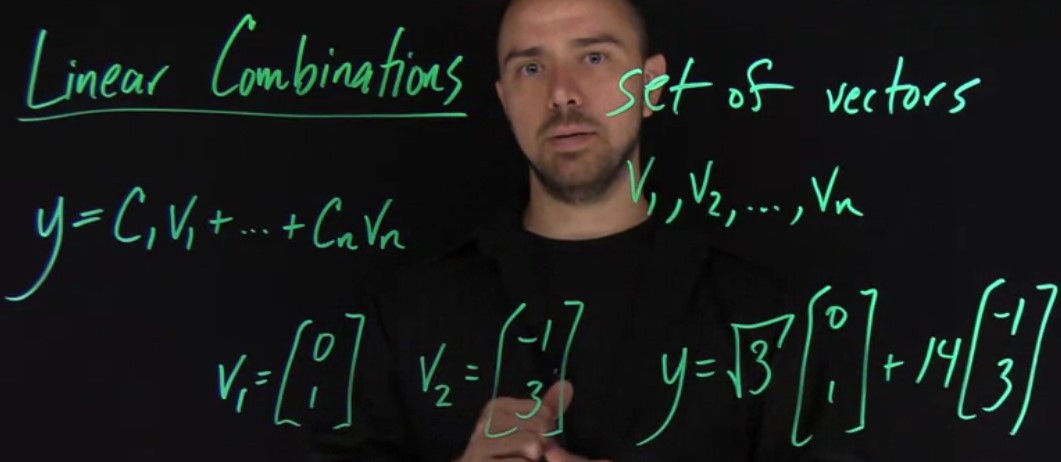 Linear Combinations
set of vectors
V₁, V₂, ..., Vₙ
y = C₁V₁ + ... + CₙVₙ
V₁ = [0 1]
V₂ = [-1 3]
y = √3 [0 1] + 14 [-1 3]